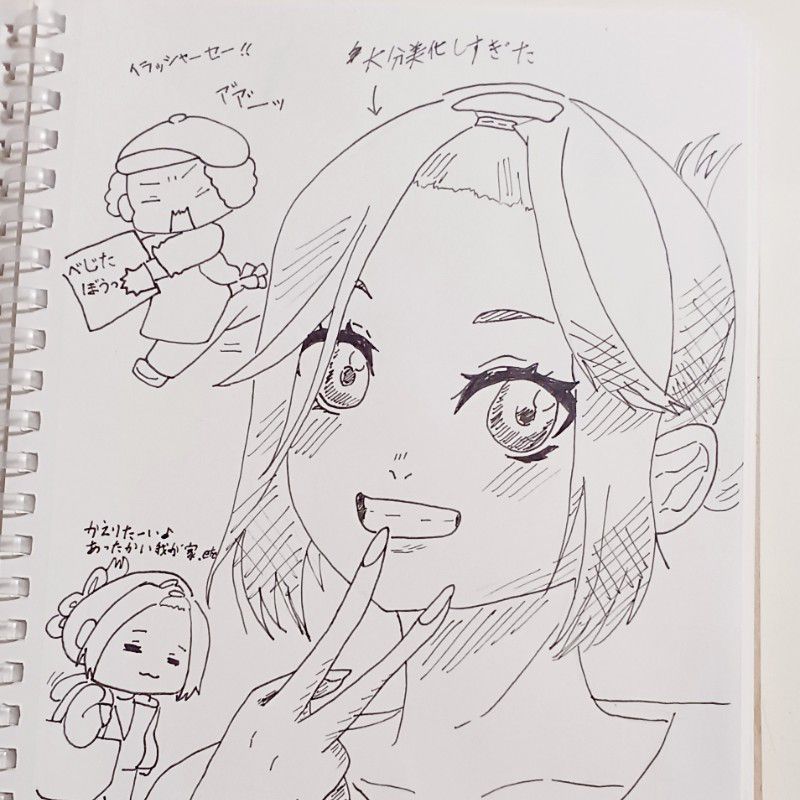 イラッシャーセー!!
アアーッ
大分美化しすぎた
べじた
ぼうっ
かえりたーい♪
あったかい我が家